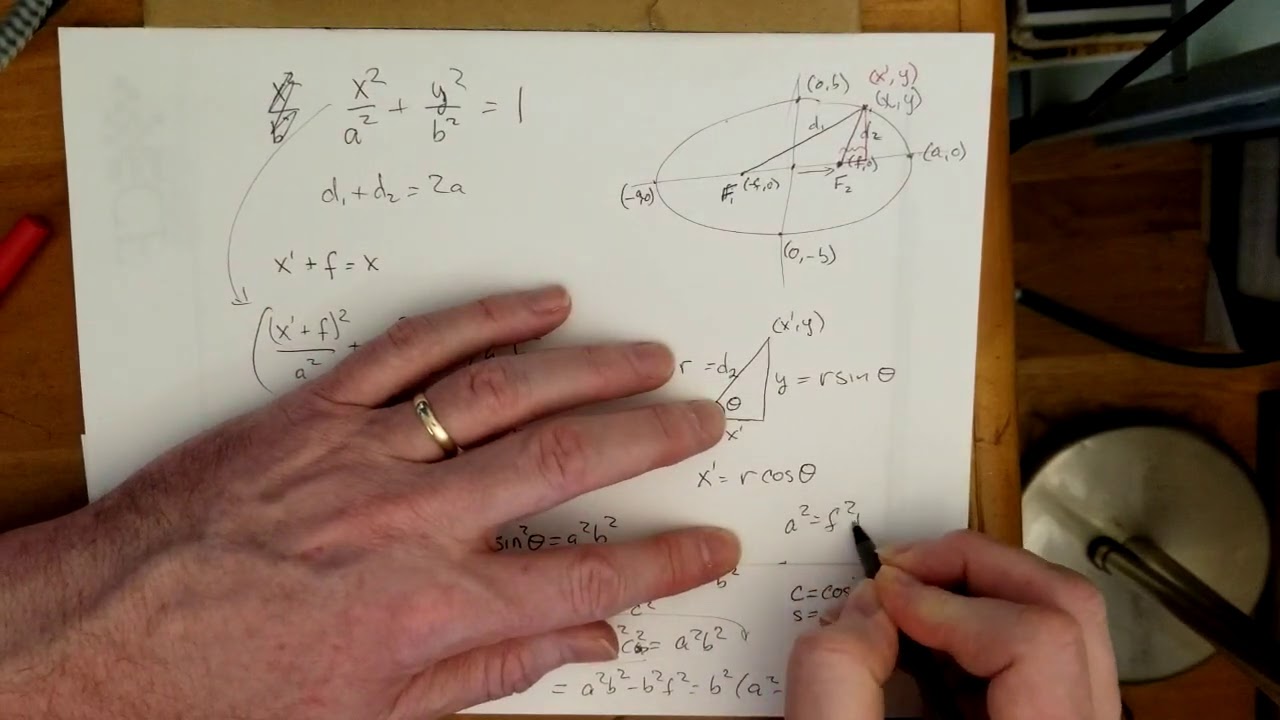 x²/a² + y²/b² = 1
d₁ + d₂ = 2a
x' + f = x
(x' + f)²
a²
(0, b)
(x', y)
(x, y)
d₁
d₂
(a, 0)
(f, 0)
(-f, 0)
F₁
F₂
(0, -b)
(x', y)
r = d₂
y = r sin θ
θ
x'
x' = r cos θ
a² = f²
sin²θ = a²b²
b²
c²
c = cos
s =
= a²b²
= a²b² - b²f² = b²(a² -